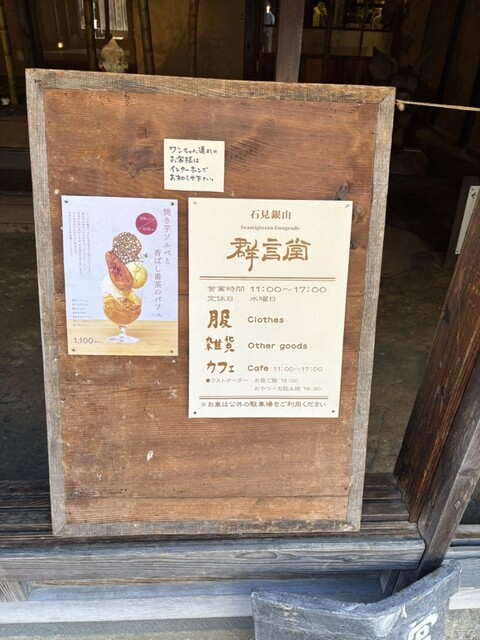 ワンちゃん連れの
お客様は
インターホンで
お知らせ下さい。
焼き芋ソルベと
香ばし番茶のパフェ
1,100
石見銀山
Iwamiginzan Gungendo
群言堂
営業時間 11:00～17:00
定休日 水曜日
服 Clothes
雑貨 Other goods
カフェ Cafe 11:00～17:00
●ラストオーダー/お昼ご飯 15:00
おやつ・お飲み物 16:30
※お車は公共の駐車場をご利用ください